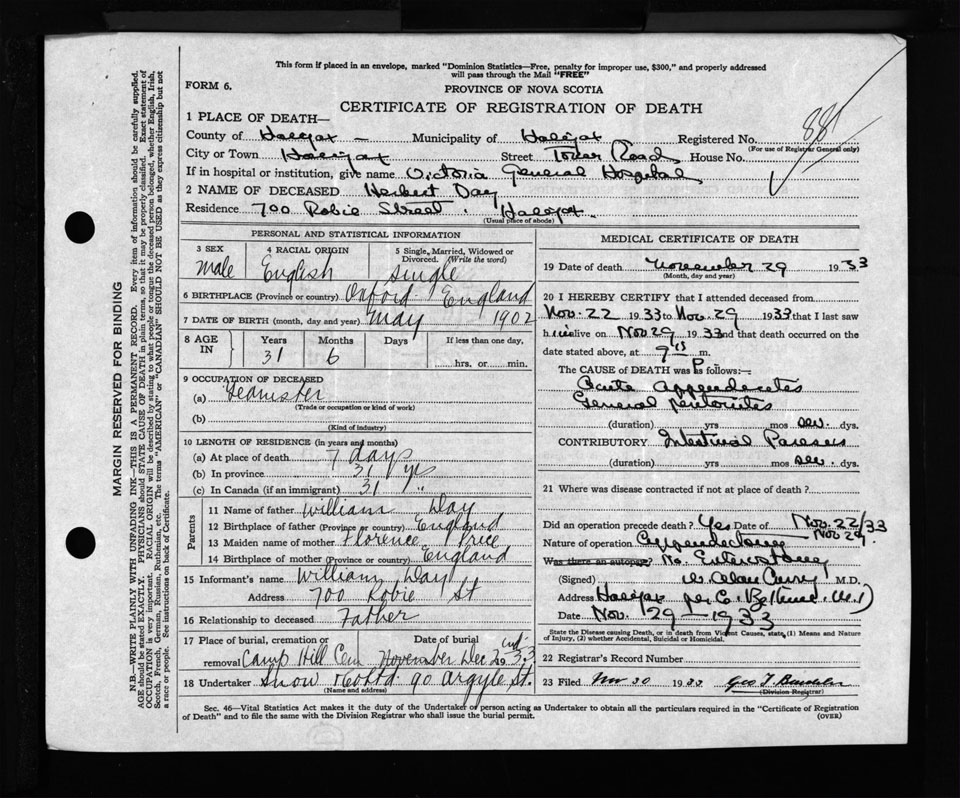 This form if placed in an envelope, marked "Dominion Statistics—Free, penalty for improper use, $300," and properly addressed
will pass through the Mail "FREE"
FORM 6.
PROVINCE OF NOVA SCOTIA
CERTIFICATE OF REGISTRATION OF DEATH
1 PLACE OF DEATH—
County of Halifax — Municipality of Halifax Registered No.
(For use of Registrar General only)
City or Town Halifax Street Tower Road House No.
If in hospital or institution, give name Victoria General Hospital
2 NAME OF DECEASED Herbert Day
Residence 700 Robie Street. Halifax.
(Usual place of abode)
PERSONAL AND STATISTICAL INFORMATION
3 SEX 4 RACIAL ORIGIN 5 Single, Married, Widowed or
Divorced. (Write the word)
Male English Single
6 BIRTHPLACE (Province or country) Oxford England
7 DATE OF BIRTH (month, day and year) May 1902
8 AGE IN Years Months Days If less than one day,
31 6 hrs. or min.
9 OCCUPATION OF DECEASED
(a) Teamster
(Trade or occupation or kind of work)
(b)
(Kind of industry)
10 LENGTH OF RESIDENCE (in years and months)
(a) At place of death 7 days
(b) In province 31 yrs
(c) In Canada (if an immigrant) 31 "
Parents
11 Name of father William Day
12 Birthplace of father (Province or country) England
13 Maiden name of mother Florence Price
14 Birthplace of mother (Province or country) England
15 Informant's name William Day
Address 700 Robie St
16 Relationship to deceased Father
17 Place of burial, cremation or Date of burial
removal Camp Hill Cem November Dec 2nd 1933
18 Undertaker Snow 90 Argyle St.
(Name and address)
MEDICAL CERTIFICATE OF DEATH
19 Date of death November 29 1933
(Month, day and year)
20 I HEREBY CERTIFY that I attended deceased from
Nov. 22 1933 to Nov. 29 1933 that I last saw
him alive on Nov 29 1933 and that death occurred on the
date stated above, at 9 15 P m.
The CAUSE of DEATH was as follows:—
Acute Appendicitis
General Peritonitis
(duration) yrs mos sev. dys.
CONTRIBUTORY Intestinal Paresis
(duration) yrs mos sev. dys.
21 Where was disease contracted if not at place of death?
Did an operation precede death? Yes Date of Nov. 22/33
Nov 29.
Nature of operation Appendectomy
Was there an autopsy? No. Enterostomy
(Signed) W. Alan Curry M.D.
Address Halifax per
Date Nov. 29 — 1933
State the Disease causing Death, or in death from Violent Causes, state, (1) Means and Nature
of Injury, (2) whether Accidental, Suicidal or Homicidal.
22 Registrar's Record Number
23 Filed Nov 30 1933 Geo T
(Division Registrar)
Sec. 46—Vital Statistics Act makes it the duty of the Undertaker or person acting as Undertaker to obtain all the particulars required in the "Certificate of Registration
of Death" and to file the same with the Division Registrar who shall issue the burial permit. (OVER)
MARGIN RESERVED FOR BINDING
N.B.—WRITE PLAINLY WITH UNFADING INK—THIS IS A PERMANENT RECORD. Every item of information should be carefully supplied.
AGE should be stated EXACTLY. PHYSICIANS should STATE CAUSE OF DEATH in plain terms, so that it may be properly classified. Exact statement of
OCCUPATION is very important. RACIAL ORIGIN will be described by stating to what people or tongue the deceased person belonged, whether English, Irish,
Scotch, French, German, Russian, Ruthenian, etc. The terms "AMERICAN" or "CANADIAN" SHOULD NOT BE USED as they express citizenship but not
a race or people. See instructions on back of Certificate.